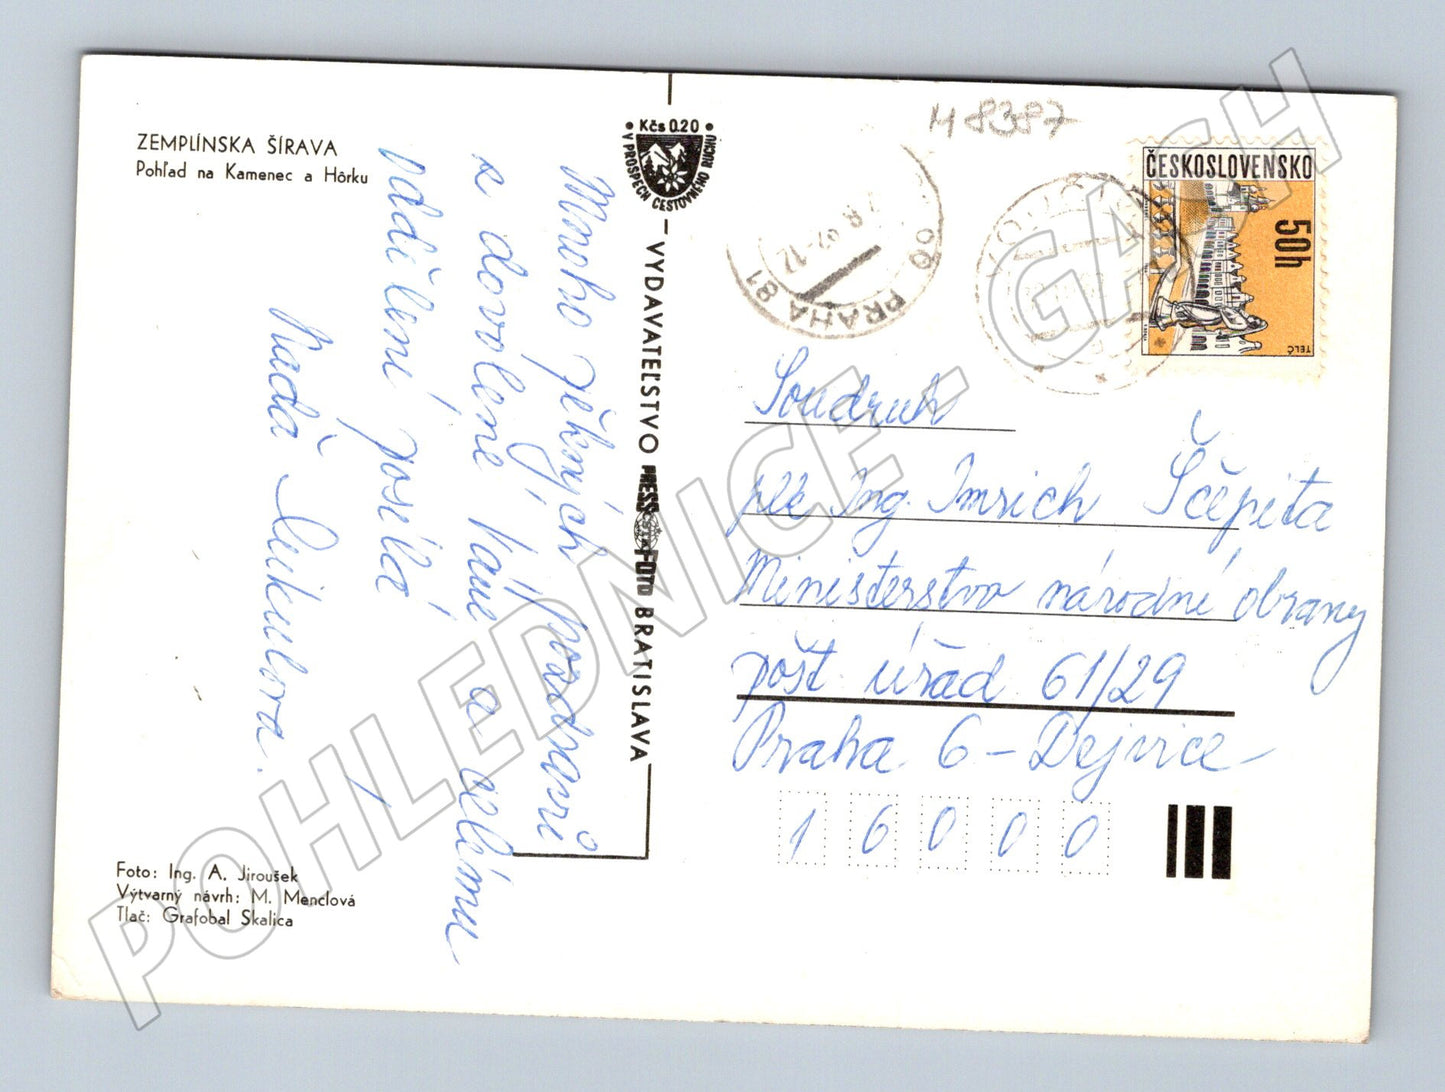 ZEMPLÍNSKA ŠÍRAVA
Pohľad na Kamenec a Hôrku
Mnoho pěkných pozdravů
z dovolené Vám a celému
oddělení posílá
Naďa Mikulova.
Foto: Ing. A. Jiroušek
Výtvarný návrh: M. Menclová
Tlač: Grafobal Skalica
Kčs 0.20
V PROSPECH CESTOVNÉHO RUCHU
VYDAVATEĽSTVO PRESSFOTO BRATISLAVA
M 8387
PRAHA 81
ČESKOSLOVENSKO
50h
TELČ
Soudruh
plk Ing. Imrich Ščepita
Ministerstvo národné obrany
pošt úřad 61/29
Praha 6 - Dejvice
1 6 0 0 0
POHLEDNICE - GACH